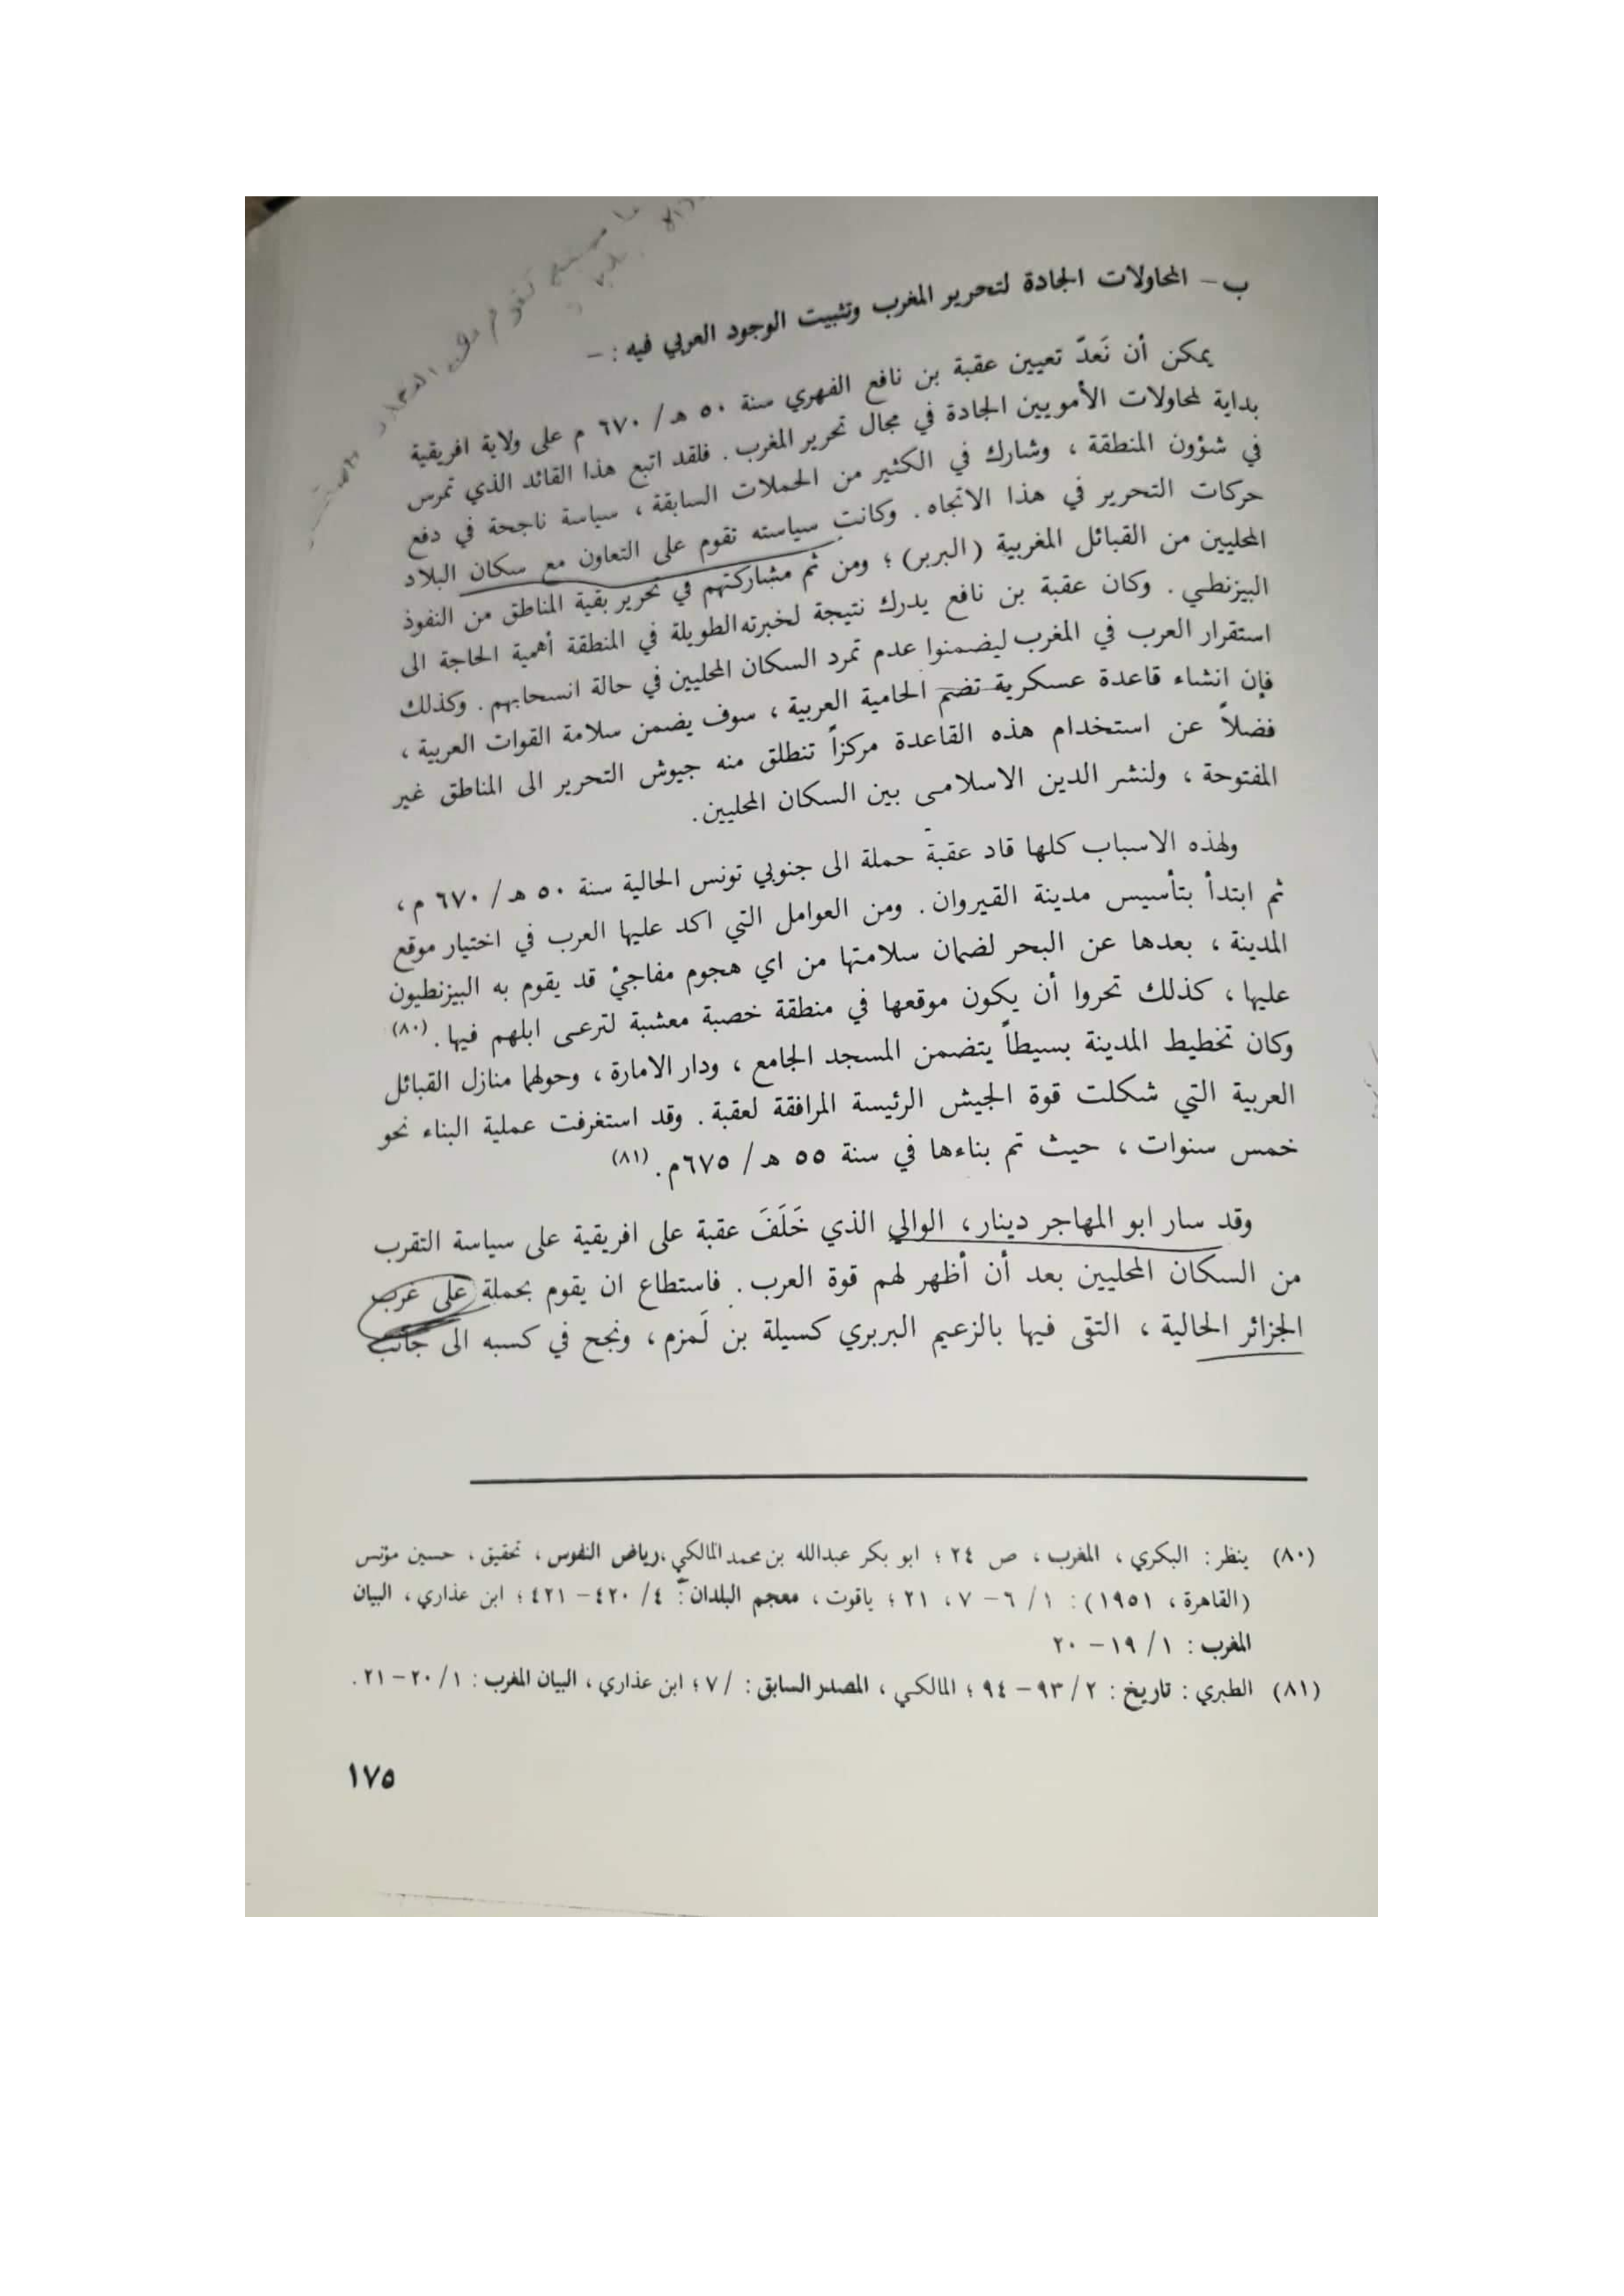 ب – المحاولات الجادة لتحرير المغرب وتثبيت الوجود العربي فيه : –
يمكن أن نَعدّ تعيين عقبة بن نافع الفهري سنة ٥٠ هـ / ٦٧٠ م على ولاية افريقية
بداية لمحاولات الأمويين الجادة في مجال تحرير المغرب . فلقد اتبع هذا القائد الذي تمرس
في شؤون المنطقة ، وشارك في الكثير من الحملات السابقة ، سياسة ناجحة في دفع
حركات التحرير في هذا الاتجاه . وكانت سياسته تقوم على التعاون مع سكان البلاد
المحليين من القبائل المغربية (البربر) ؛ ومن ثم مشاركتهم في تحرير بقية المناطق من النفوذ
البيزنطي . وكان عقبة بن نافع يدرك نتيجة لخبرته الطويلة في المنطقة أهمية الحاجة الى
استقرار العرب في المغرب ليضمنوا عدم تمرد السكان المحليين في حالة انسحابهم . وكذلك
فإن انشاء قاعدة عسكرية تضم الحامية العربية ، سوف يضمن سلامة القوات العربية ،
فضلاً عن استخدام هذه القاعدة مركزاً تنطلق منه جيوش التحرير الى المناطق غير
المفتوحة ، ولنشر الدين الاسلامي بين السكان المحليين .
ولهذه الاسباب كلها قاد عقبة حملة الى جنوبي تونس الحالية سنة ٥٠ هـ / ٦٧٠ م ،
ثم ابتدأ بتأسيس مدينة القيروان . ومن العوامل التي اكد عليها العرب في اختيار موقع
المدينة ، بعدها عن البحر لضمان سلامتها من اي هجوم مفاجئ قد يقوم به البيزنطيون
عليها ، كذلك تحروا أن يكون موقعها في منطقة خصبة معشبة لترعى ابلهم فيها . (٨٠)
وكان تخطيط المدينة بسيطاً يتضمن المسجد الجامع ، ودار الامارة ، وحولها منازل القبائل
العربية التي شكلت قوة الجيش الرئيسة المرافقة لعقبة . وقد استغرفت عملية البناء نحو
خمس سنوات ، حيث تم بناءها في سنة ٥٥ هـ / ٦٧٥م . (٨١)
وقد سار ابو المهاجر دينار ، الوالي الذي خَلَفَ عقبة على افريقية على سياسة التقرب
من السكان المحليين بعد أن أظهر لهم قوة العرب . فاستطاع ان يقوم بحملة على غرب
الجزائر الحالية ، التقى فيها بالزعيم البربري كسيلة بن لَمزم ، ونجح في كسبه الى جانب
(٨٠) ينظر : البكري ، المغرب ، ص ٢٤ ؛ ابو بكر عبدالله بن محمد المالكي ، رياض النفوس ، تحقيق ، حسين مؤنس
(القاهرة ، ١٩٥١) : ١ / ٦ – ٧ ، ٢١ ؛ ياقوت ، معجم البلدان : ٤ / ٤٢٠ – ٤٢١ ؛ ابن عذاري ، البيان
المغرب : ١ / ١٩ – ٢٠
(٨١) الطبري : تاريخ : ٢ / ٩٣ – ٩٤ ؛ المالكي ، المصدر السابق : / ٧ ؛ ابن عذاري ، البيان المغرب : ١ / ٢٠ – ٢١ .
١٧٥